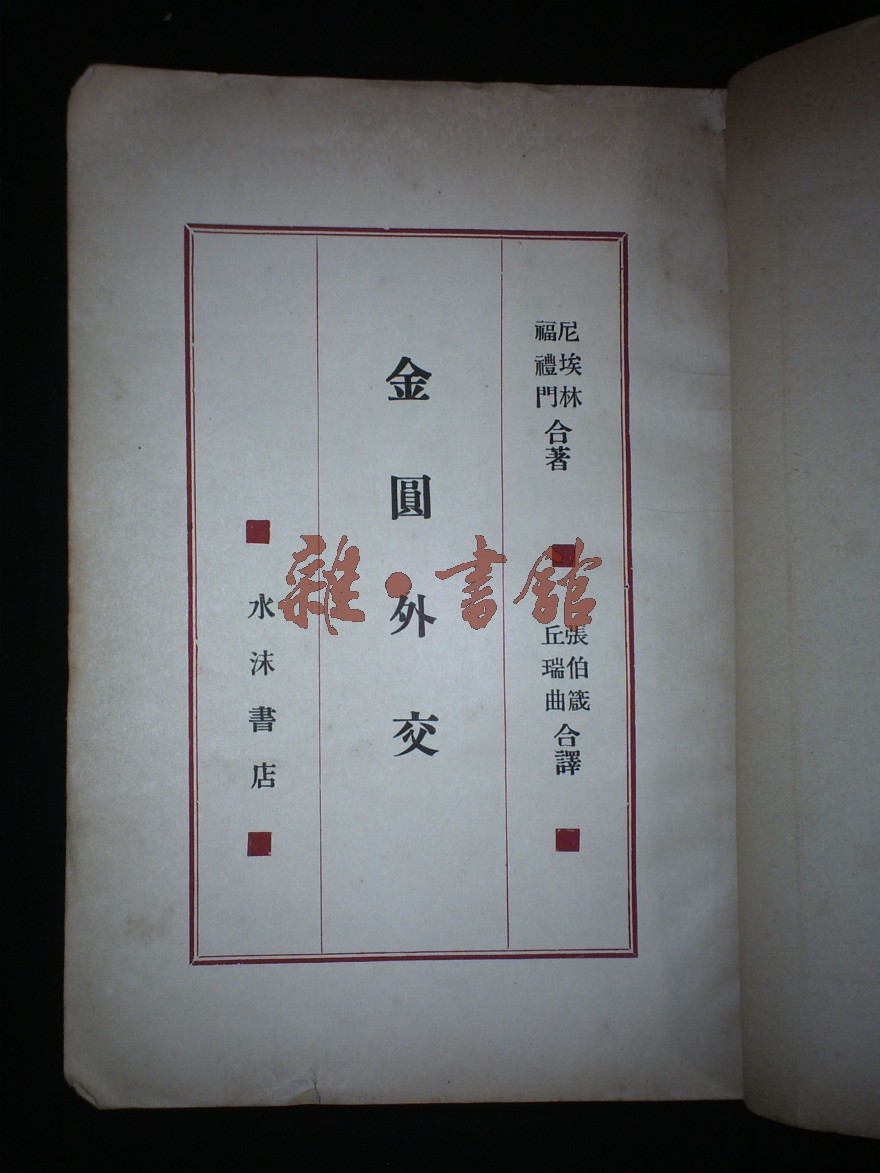 尼埃林
福禮門
合著
張伯箴
丘瑞曲
合譯
金圓外交
水沫書店
雜·書館